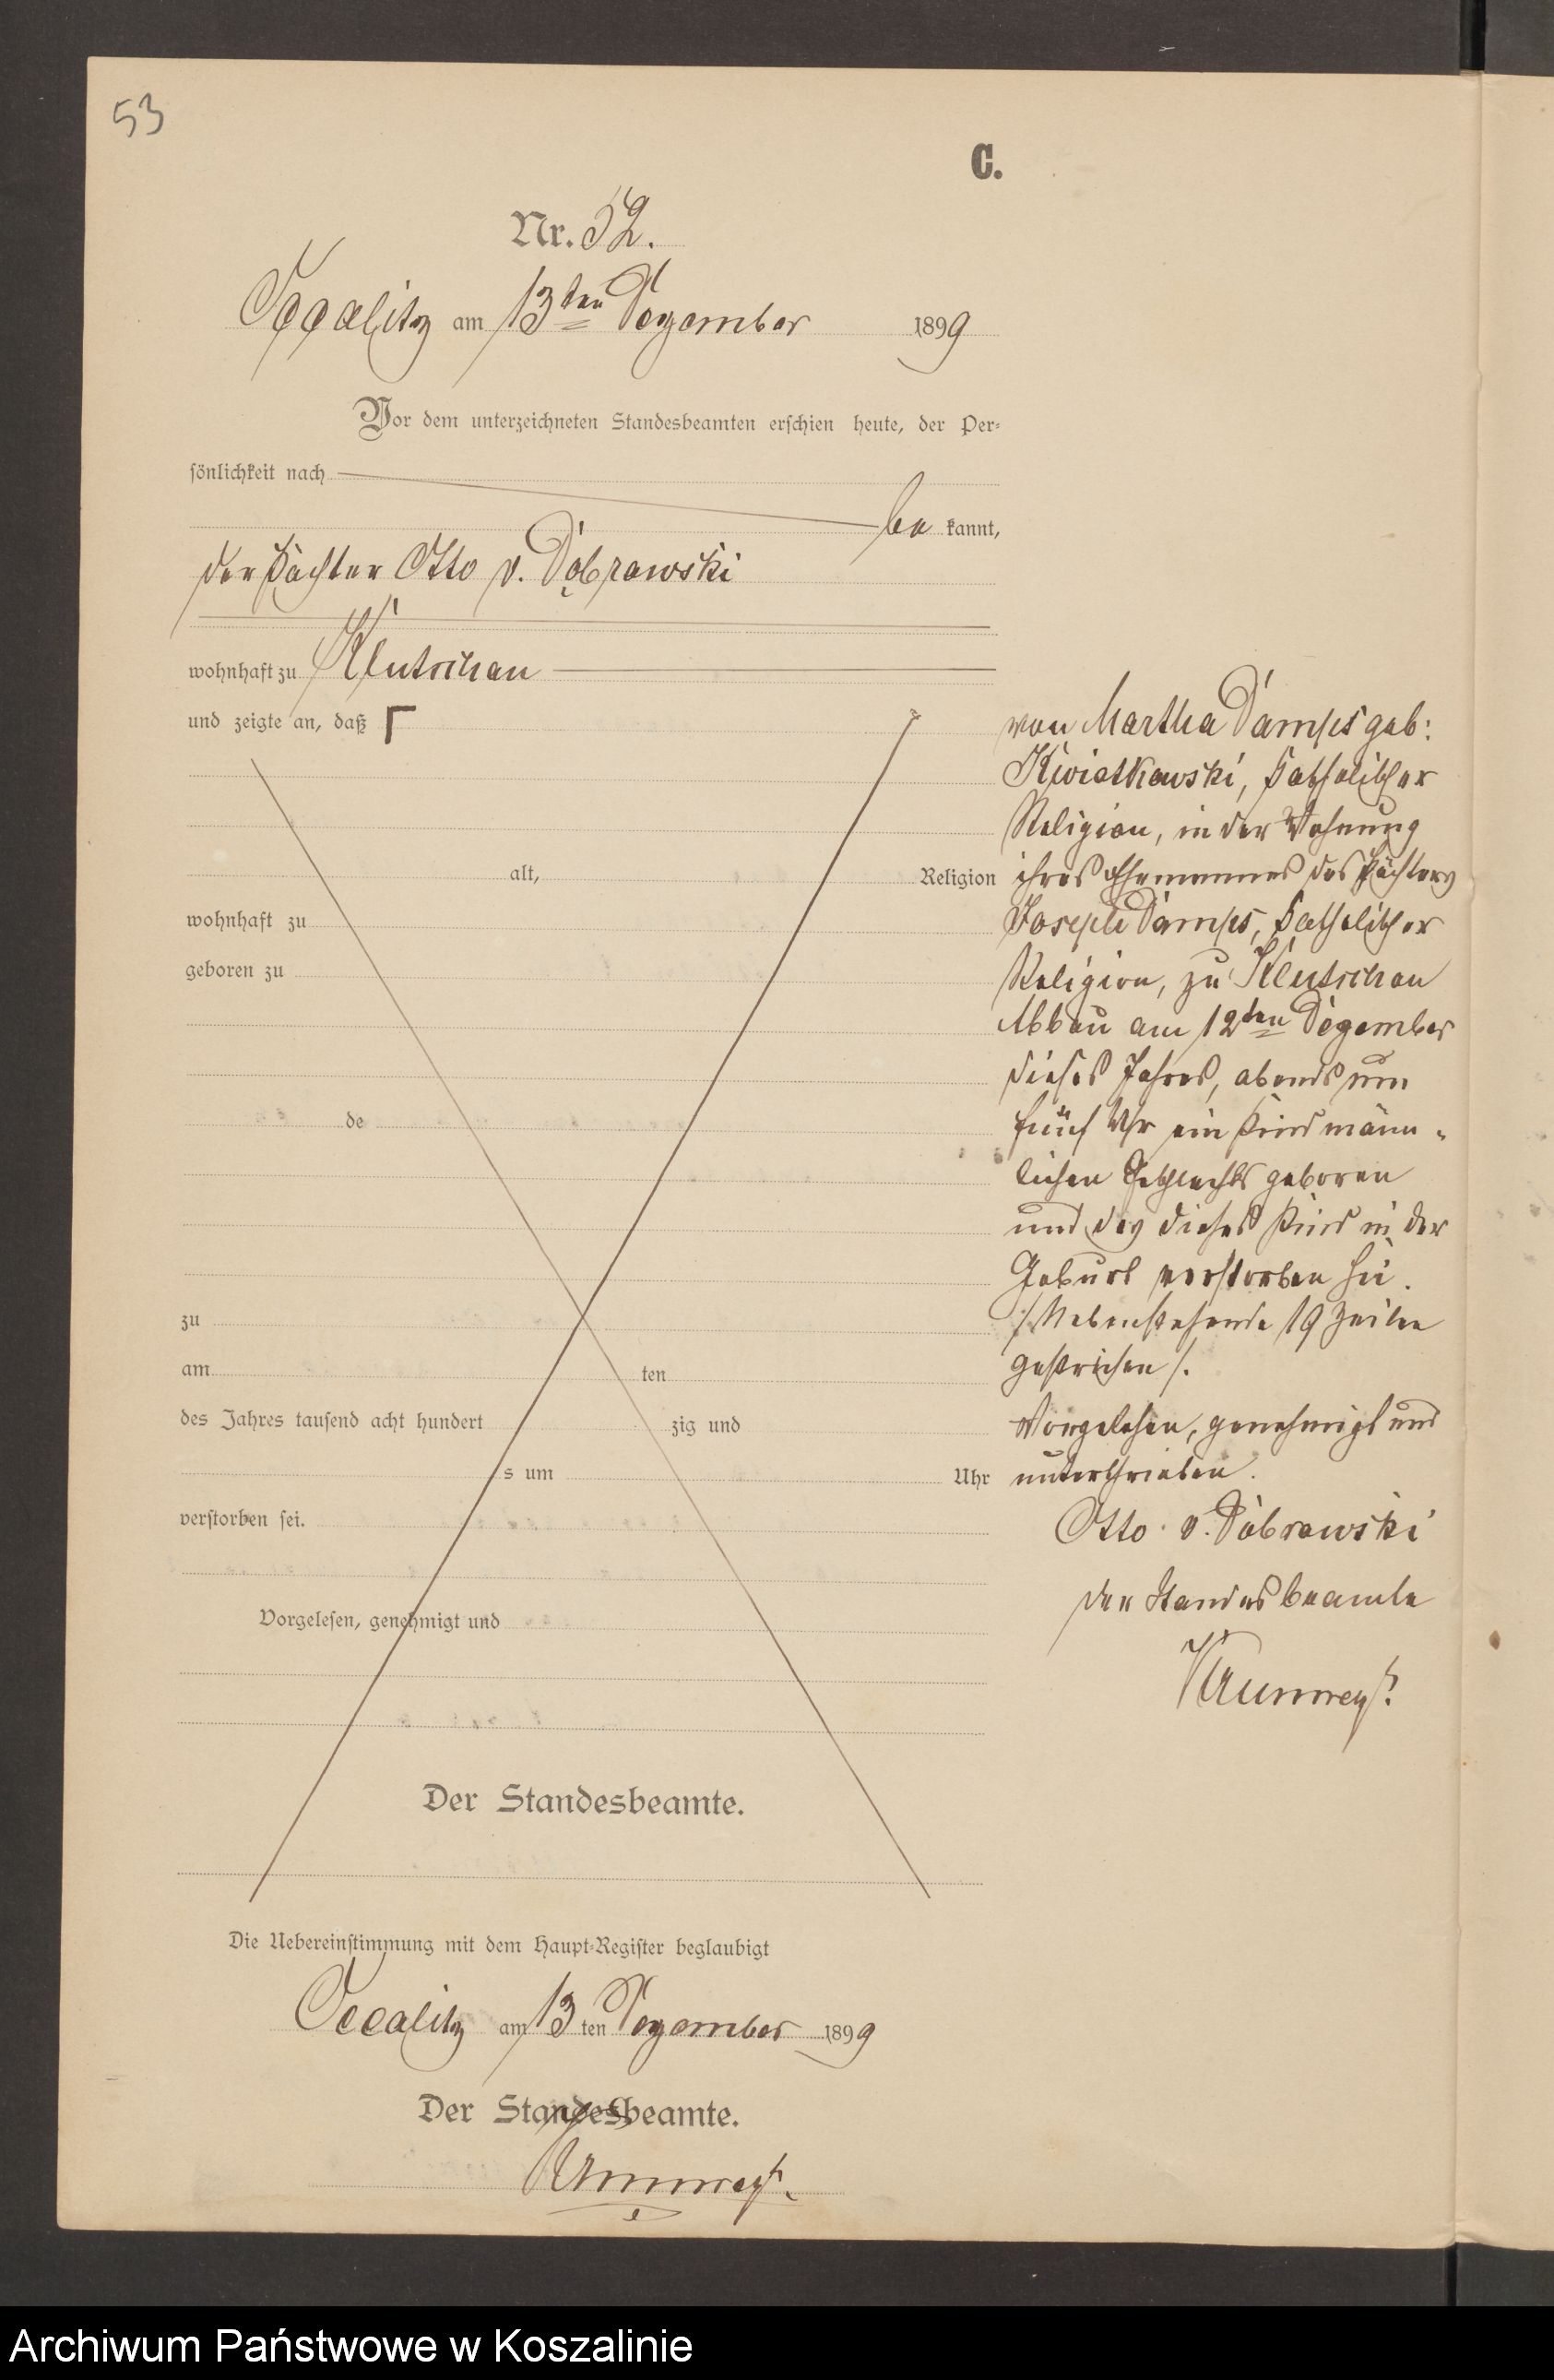 53
C.
Nr. 52.
Occalitz am 13ten Dezember 1899
Vor dem unterzeichneten Standesbeamten erschien heute, der Per-
sönlichkeit nach
be kannt,
der Pächter Otto v. Dobrawski
wohnhaft zu Klutschau
und zeigte an, daß Γ
alt, Religion
wohnhaft zu
geboren zu
de
zu
am ten
des Jahres tausend acht hundert zig und
s um Uhr
verstorben sei.
Vorgelesen, genehmigt und
Der Standesbeamte.
von Martha Damps geb:
Kwiatkowski, katholischer
Religion, in der Wohnung
ihres Ehemannes des Pächters
Joseph Damps, katholischer
Religion, zu Klutschau
Abbau am 12ten Dezember
dieses Jahres, abends um
fünf Uhr ein Kind männ-
lichen Geschlechts geboren
und daß dieses Kind in der
Geburt verstorben sei.
/Nebenstehende 19 Zeilen
gestrichen/.
Vorgelesen, genehmigt und
unterschrieben.
Otto v. Dobrawski
der Standesbeamte
Die Uebereinstimmung mit dem Haupt-Register beglaubigt
Occalitz am 13 ten Dezember 1899
Der Standesbeamte.
Archiwum Państwowe w Koszalinie